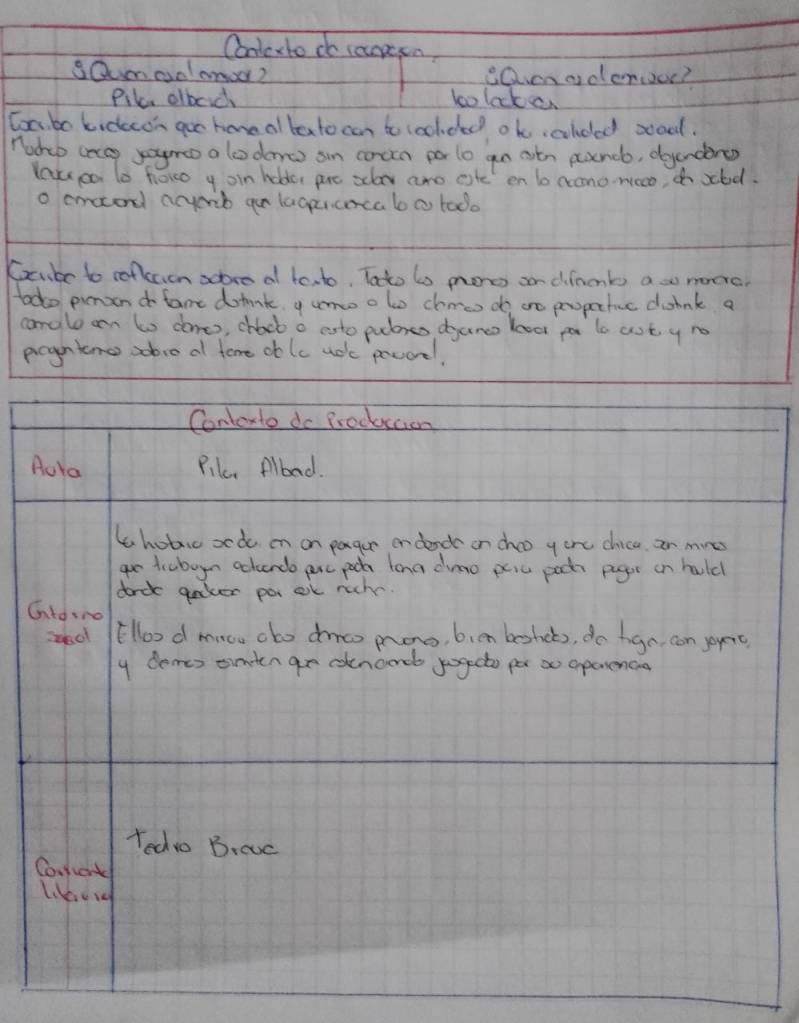 Contexto de recepcion.
¿Quien es el emisor? ¿Quien es el emisor?
Pilar albach los lectores
Escribo la relacion que tiene el texto con tu realidad o la realidad social.
Muchas veces juzgamos a los demas sin conocer por lo que estan pasando, dejandonos
por lo fisico y sin hablar para saber como este en lo economico, de salud.
o emocional creyendo que la apariencia lo es todo
Escribo tu reflexion sobre el texto. Todas las personas son diferentes a su manera.
todos piensan de forma distinta y vemos a los demas de una perspectiva distinta a
como lo ven los demas, debido a esto podemos dejarnos llevar por la y no
preguntarnos sobre el tema de la vida personal.
Contexto de Produccion
Autra Pilar Albad.
La historia sede en un parque en donde un chico y una chica, son mimos
que trabajan actuando para poder tener dinero para poder pagar un hotel
donde quedar por esta noche.
Entorno
social Ellos al mirar a los demas personas, bien vestidos, de traje, con joyeria,
y demas sienten que estan siendo juzgados por su apariencia
Teatro Breve
Corriente
Literaria